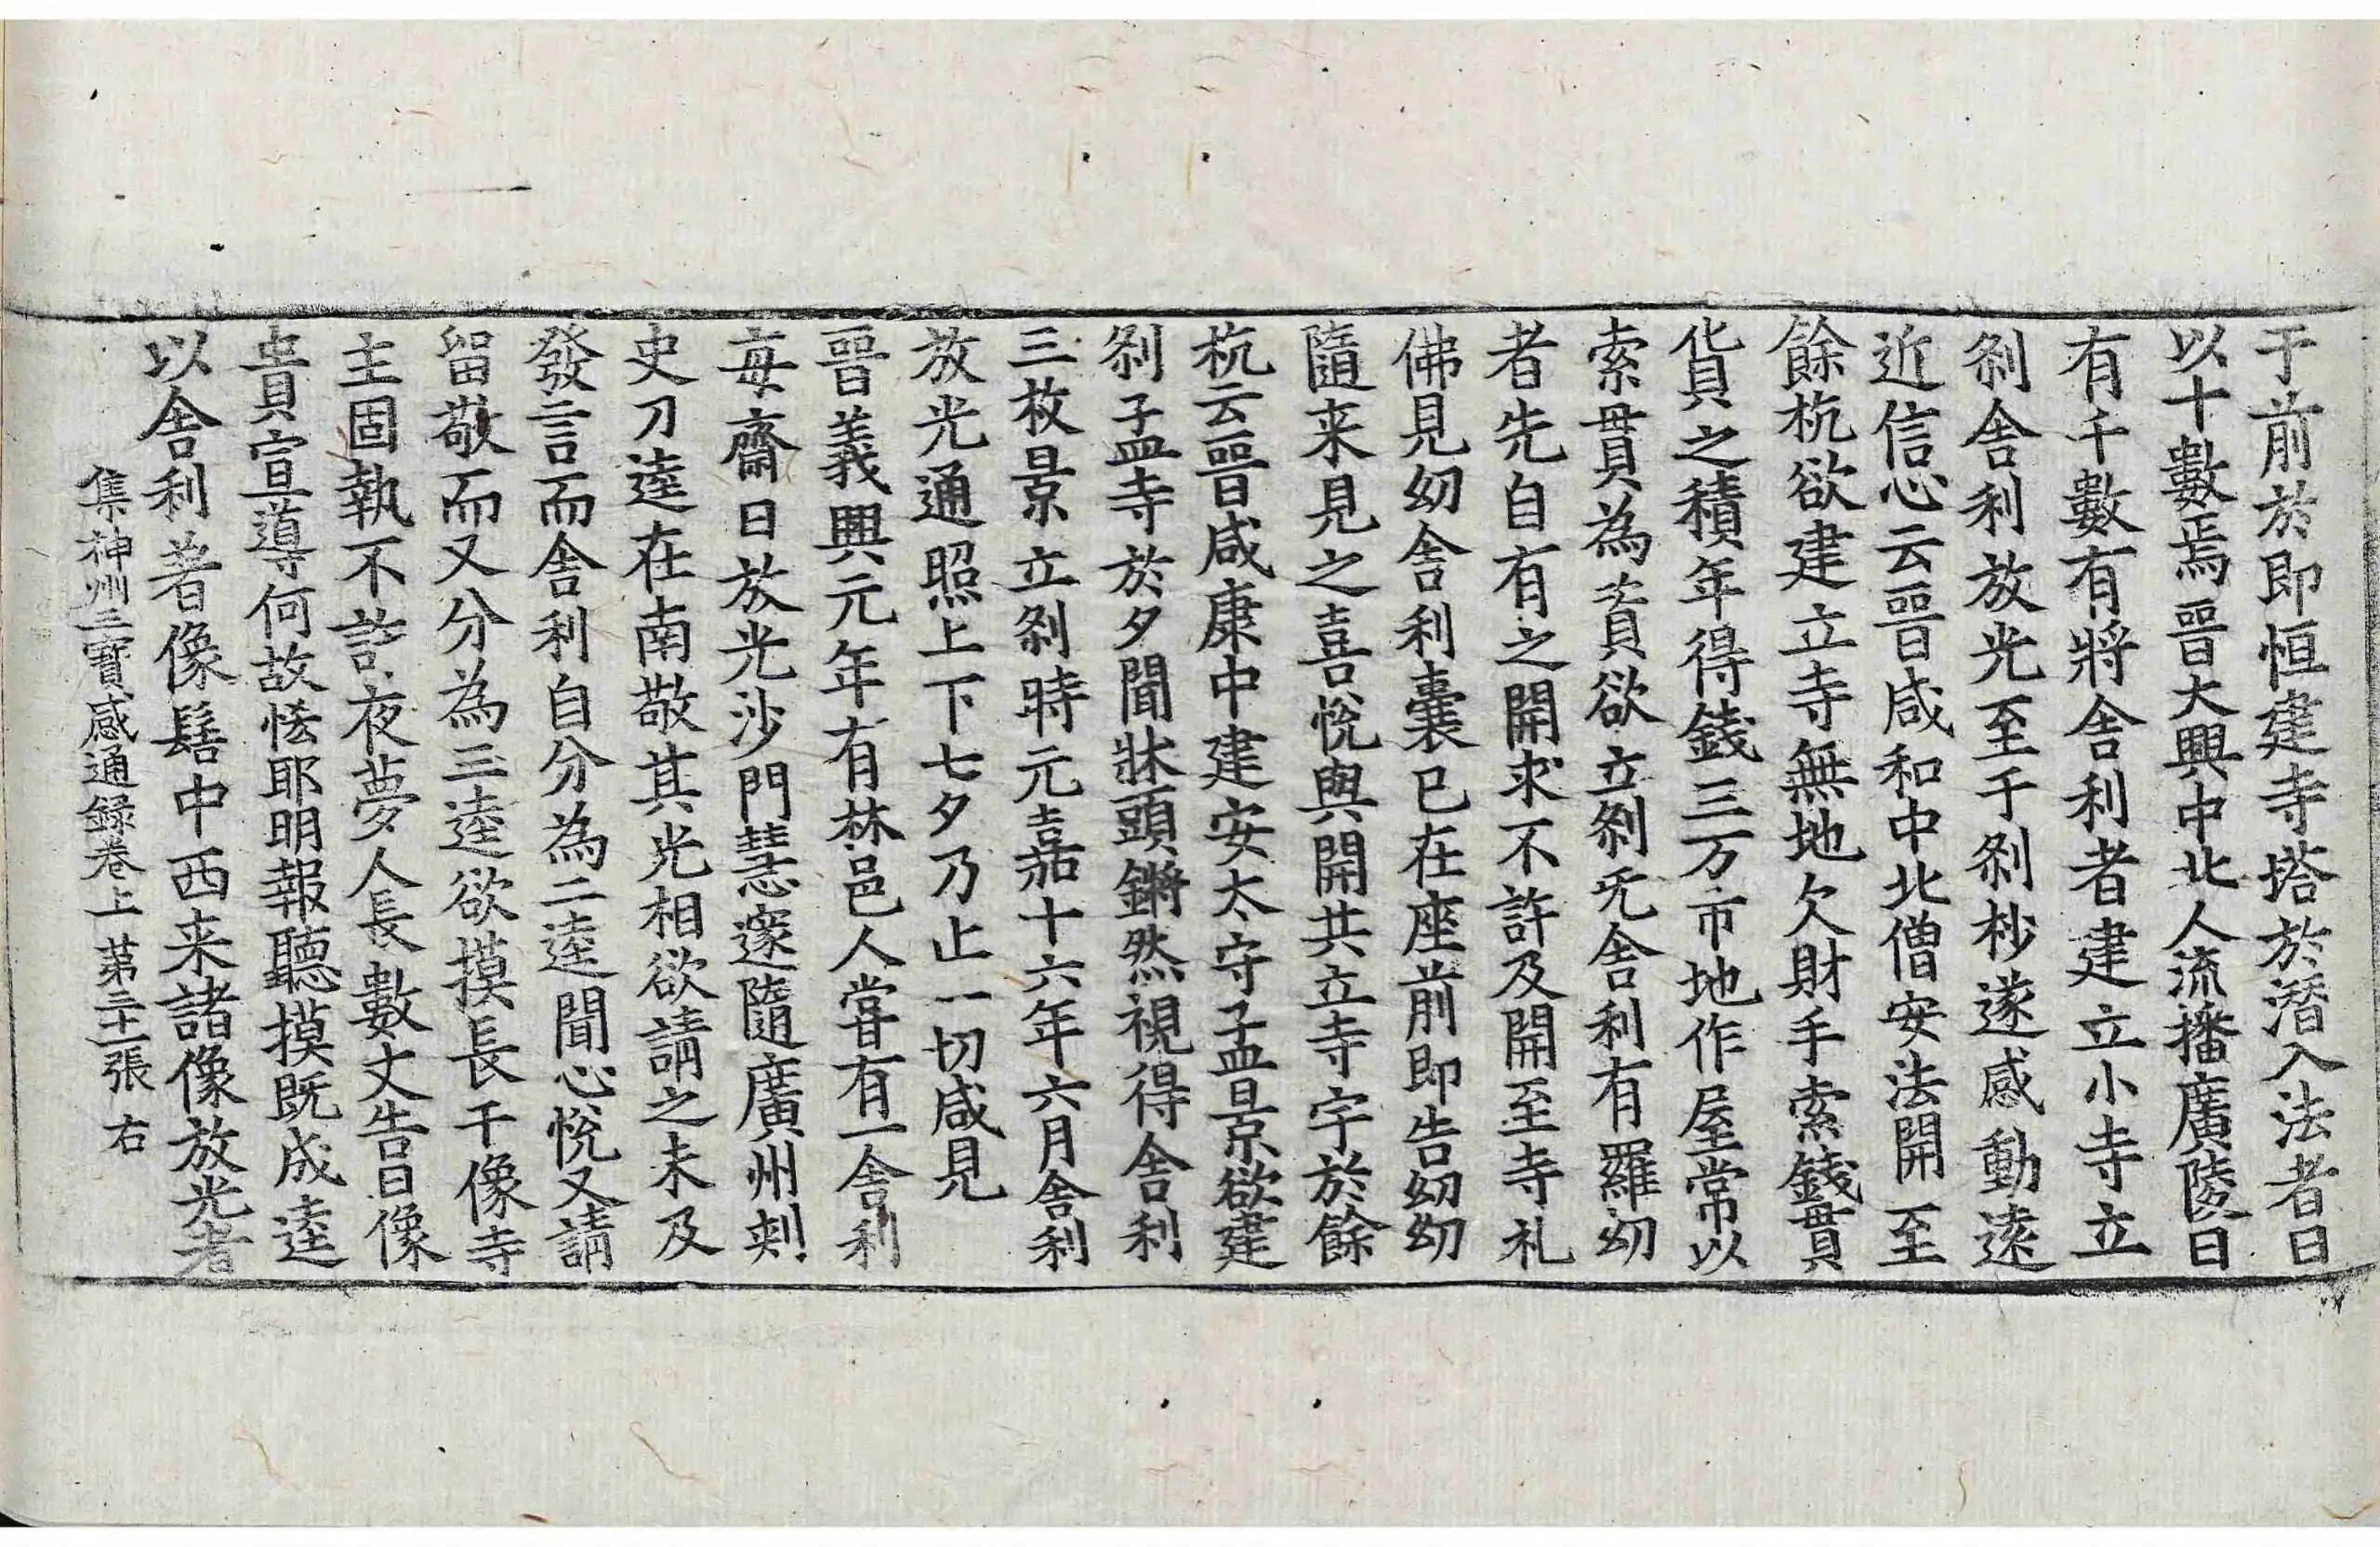 于前於即恒建寺塔於潛入法者日
以十數焉晉大興中北人流播廣陵日
有千數有將舍利者建立小寺立
刹舍利放光至于刹杪遂感動遠
近信心云晉咸和中北僧安法開至
餘杭欲建立寺無地欠財手索錢貫
貨之積年得錢三万市地作屋常以
索貫為資欲立刹旡舍利有羅幼
者先自有之開求不許及開至寺礼
佛見幼舍利囊已在座前即告幼幼
隨来見之喜悅與開共立寺宇於餘
杭云晉咸康中建安太守孟景欲建
刹孟寺於夕聞牀頭鏘然視得舍利
三枚景立刹時元嘉十六年六月舍利
放光通照上下七夕乃止一切咸見
晉義興元年有林邑人甞有一舍利
每齋日放光沙門慧邃隨廣州刺
史刀逵在南敬其光相欲請之未及
發言而舍利自分為二逵聞心悅又請
留敬而又分為三逵欲摸長干像寺
主固執不許夜夢人長數丈告曰像
貴宣導何故悋耶明報聽摸既成逵
以舍利著像髻中西来諸像放光者
集神州三寶感通録卷上 苐二十一張 右